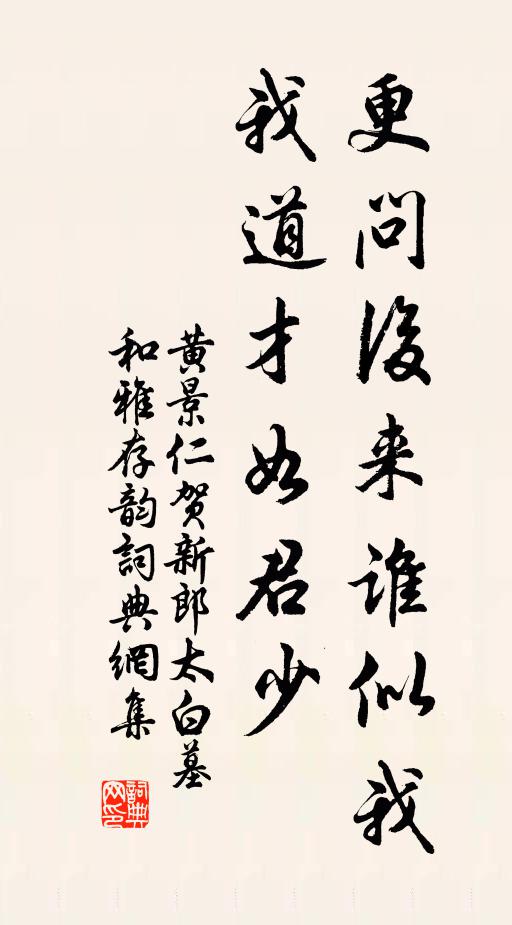 更問後来谁似我
我道才如君少
黄景仁贺新郎太白墓
和雅存韵詞典網集
詞典网印